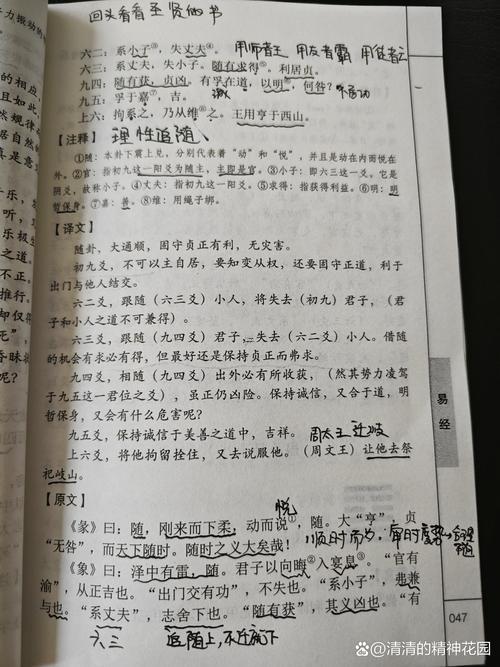 回头看看圣贤的书
六二：系小子③，失丈夫④。 用师者王 用友者霸 用徒者亡
六三：系丈夫，失小子。随有求得⑤。利居贞。
九四：随有获，贞凶。有孚在道，以明⑥，何咎？不居功
九五：孚于嘉⑦，吉。 诚
上六：拘系之，乃从维⑧之。王用亨于西山。
【注释】 理性追随、
①随：本卦下震上兑，分别代表着“动”和“悦”，并且是动在内而悦在
外。②官：指初九这一阳爻为随主，主即是官。③小子：即六三这一爻。它是
阴爻，故称小子。④丈夫：指初九这一阳爻。⑤求得：指获得利益。⑥明：明
哲保身。⑦嘉：善。⑧维：用绳子绑。
【译文】
随卦，大通顺，固守贞正有利，无灾害。
初九爻，不可以主自居，要知变从权，还要固守正道，利于
出门与他人结交。
六二爻，跟随（六三爻）小人，将失去（初九）君子，（君
子和小人之道不可兼得）。
六三爻，跟随（九四爻）君子，失去（六二爻）小人。借随
的机会有求必有得，但最好还是保持贞正而弗求。
九四爻，相随（九四爻）出外必有所收获，（然其势力凌驾
于九五这一君位之爻），虽正仍凶险。保持诚信，又合于道，明
哲保身，又会有什么危害呢？
九五爻，保持诚信于美善之道中，吉祥。 周太王迁岐
上六爻，将他拘留拴住，又去说服他。（周文王）让他去祭
祀岐山。
【原文】
悦
《彖》曰：随，刚来而下柔，动而说①，随。大“亨”，贞
“无咎”，而天下随时。随时之义大矣哉！ 顺时而为，审时度势
《象》曰：泽中有雷，随。君子以向晦②入宴息③。“官有
渝”，从正吉也。“出门交有功”，不失也。“系小子”，弗兼
与也。“系丈夫”，志舍下也。“随有获”，其义凶也。“有
六三 追随上，不迁就下
易经
047
头条 @清清的精神花园